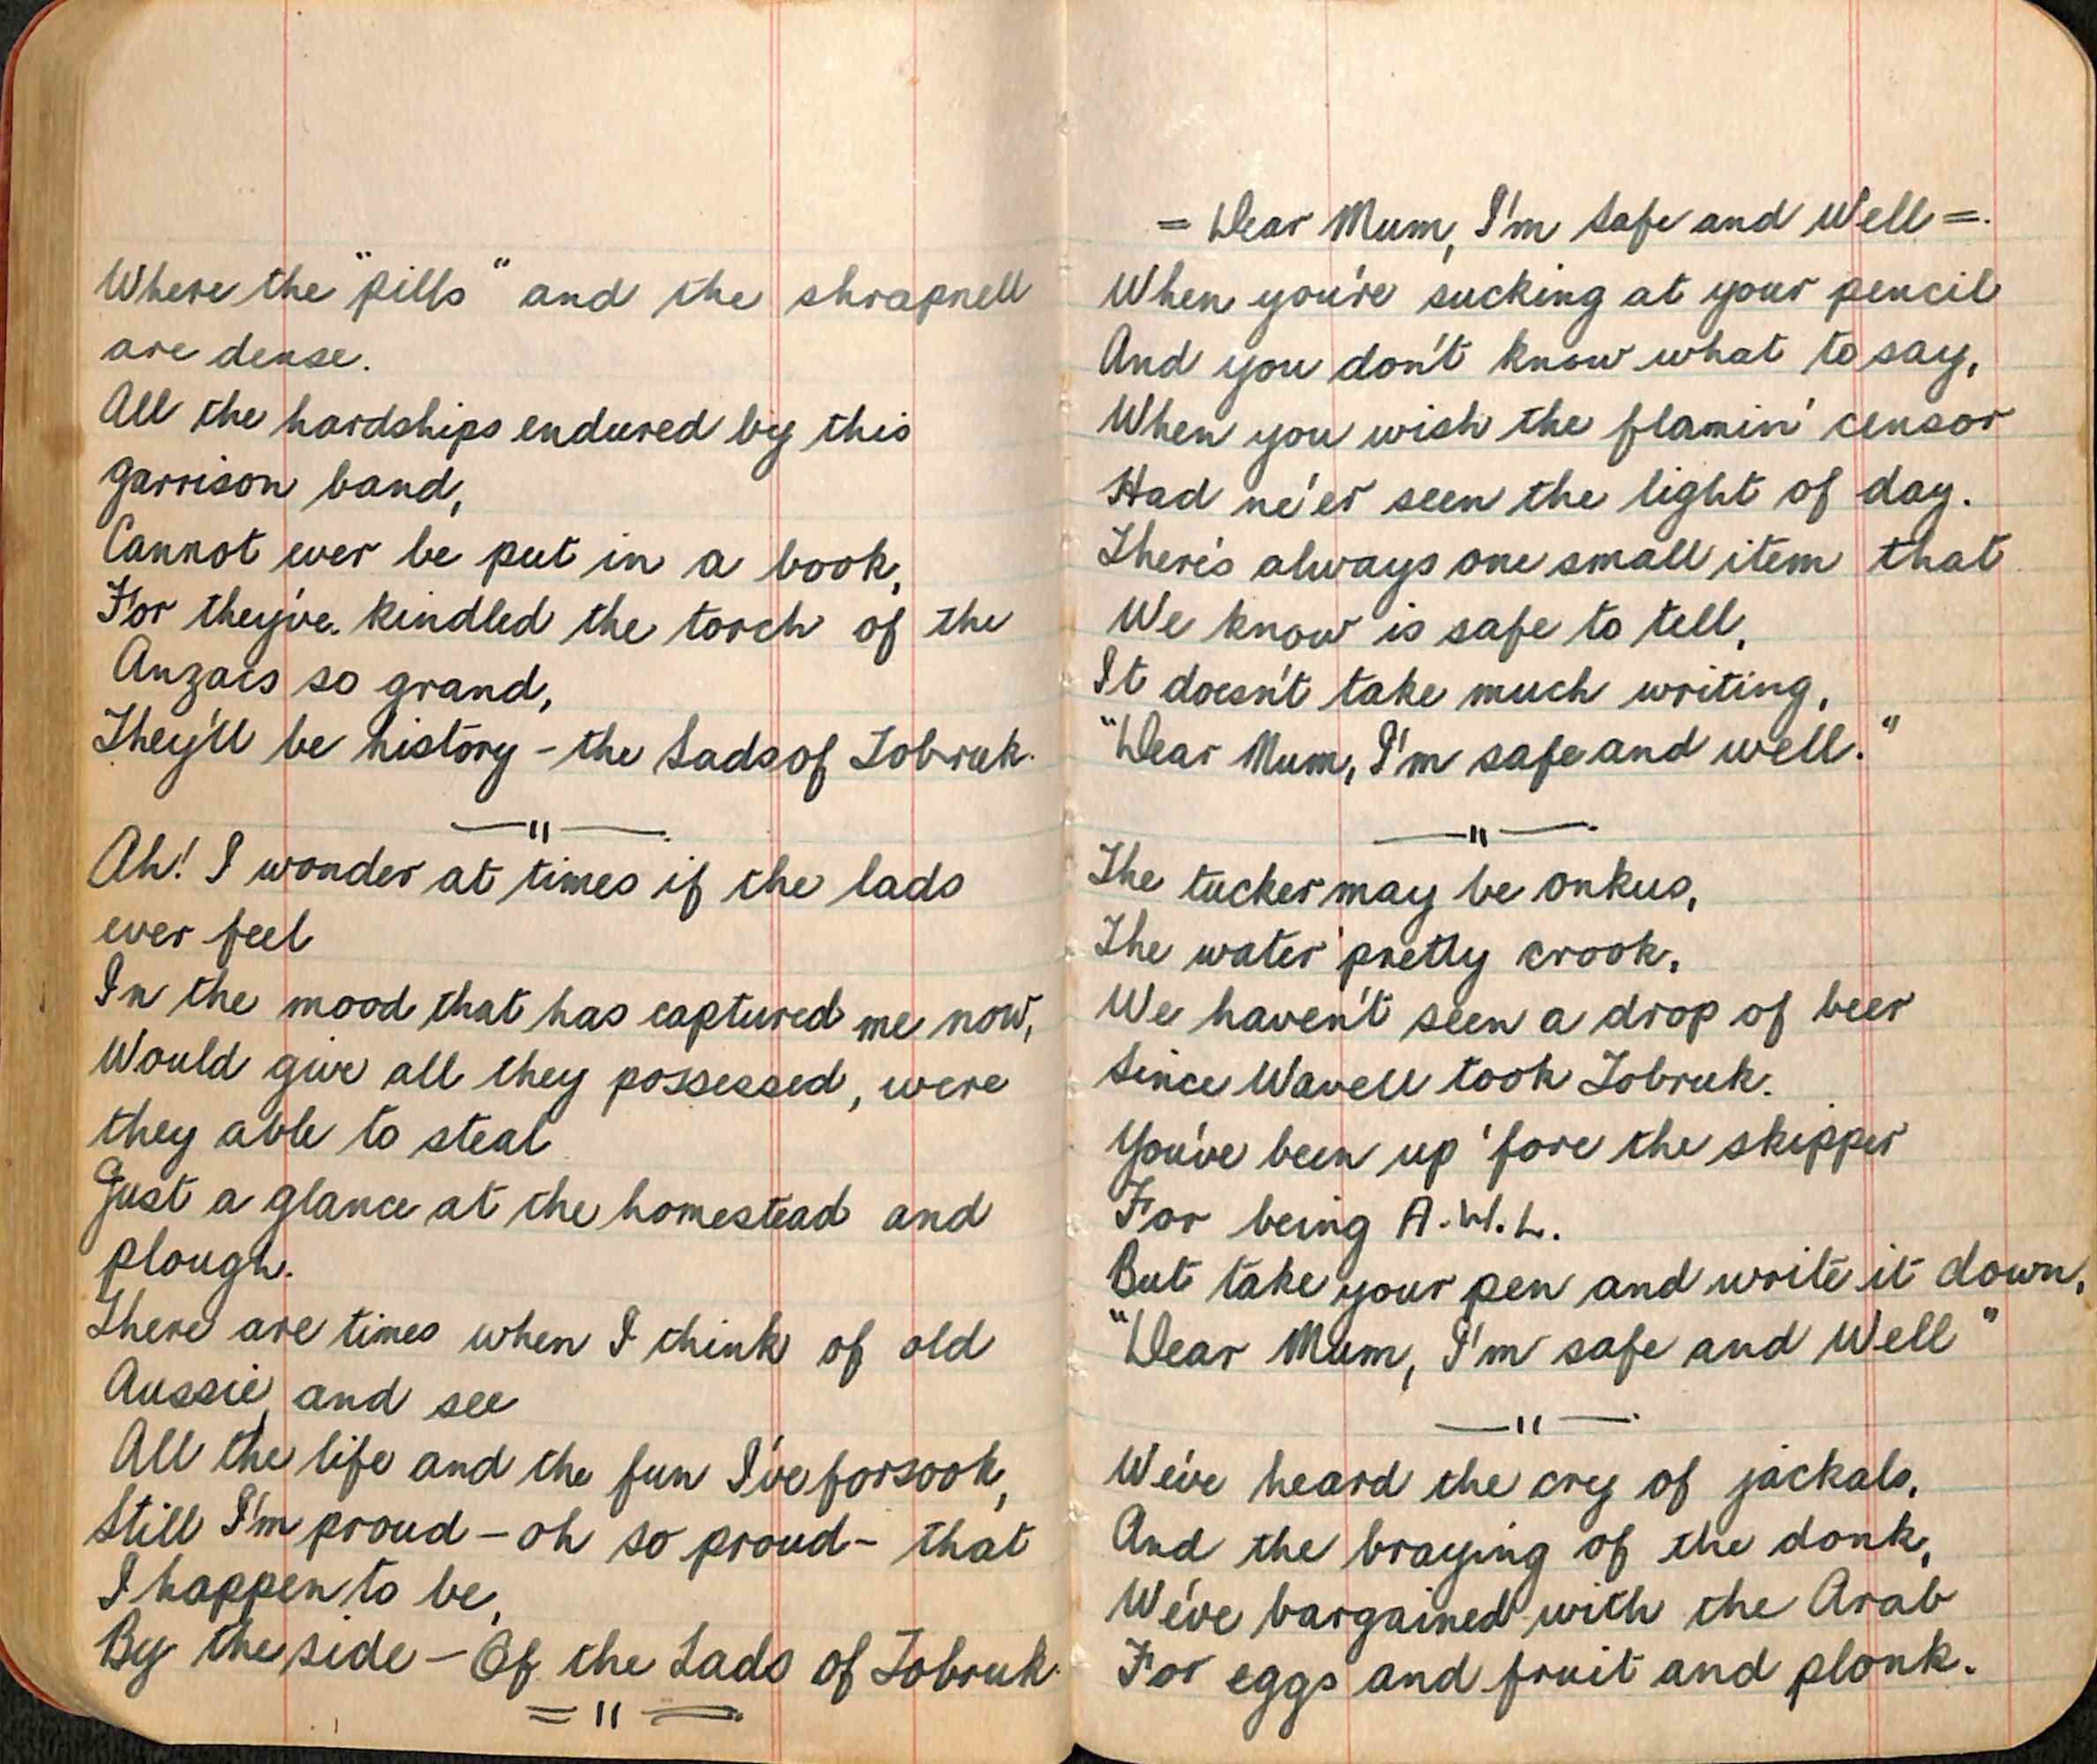 Where the "pills" and the shrapnell
are dense.
All the hardships endured by this
garrison band,
Cannot ever be put in a book,
For they've kindled the torch of the
Anzacs so grand,
They'll be history – the Lads of Tobruk.
— " —
Ah! I wonder at times if the lads
ever feel
In the mood that has captured me now,
Would give all they possessed, were
they able to steal
Just a glance at the homestead and
plough.
There are times when I think of old
Aussie, and see
All the life and the fun I've forsook,
Still I'm proud – oh so proud – that
I happen to be,
By the side – Of the Lads of Tobruk.
= " =
= Dear Mum, I'm Safe and Well =.
When you're sucking at your pencil
And you don't know what to say,
When you wish the flamin' censor
Had ne'er seen the light of day.
There's always one small item that
We know is safe to tell,
It doesn't take much writing,
"Dear Mum, I'm safe and well."
— " —
The tucker may be onkus,
The water pretty crook,
We haven't seen a drop of beer
Since Wavell took Tobruk.
You've been up 'fore the skipper
For being A.W.L.
But take your pen and write it down,
"Dear Mum, I'm safe and Well"
— " —
We've heard the cry of jackals,
And the braying of the donk,
We've bargained with the Arab
For eggs and fruit and plonk.